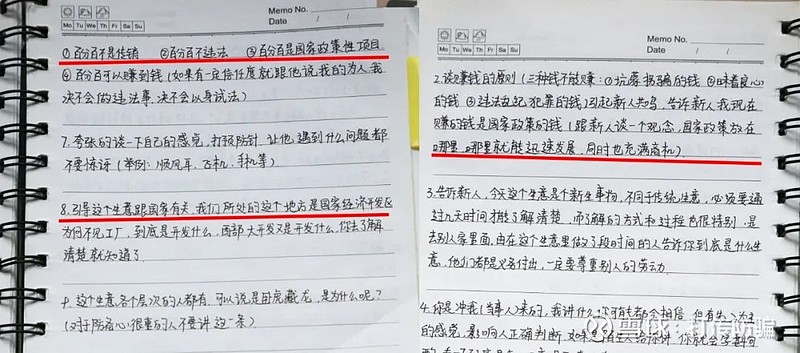 Memo No.
Mo Tu We Th Fr Sa Su
Date / /
①百分百不是传销 ②百分百不违法 ③百分百是国家政策性项目
④百分百可以赚到钱(如果有一定信任度就跟他说我的为人,我
决不会做违法事,决不会以身试法)
7、夸张的谈一下自己的感觉,打预防针,让他遇到什么问题都
不要怪讶(举例:顺风耳、飞机、手机等)
8、引导这个生意跟国家有关,我们所处的这个地方是国家经济开发区
为何不见工厂,到底是开发什么,西部大开发又是开发什么,你去了解
清楚就知道了
9、这个生意各个层次的人都有,可以说是卧虎藏龙,是为什么呢?
(对于防备心很重的人不要讲这一条)
Memo No.
Mo Tu We Th Fr Sa Su
Date / /
2、谈赚钱的原则(三种钱不能赚:①坑蒙拐骗的钱 ②昧着良心
的钱 ③违法乱纪犯罪的钱)引起新人共鸣,告诉新人我现在
赚的钱是国家政策的钱(跟新人谈一个观念,国家政策放在
哪里,哪里就能迅速发展,同时也充满商机)
3、告诉新人,今天这个生意是个新生事物,不同于传统生意,必须要通
过几天时间才能了解清楚,而了解的方式和过程也很特别,是
去别人家里面,由在这个生意里做了段时间的人告诉你到底是什么生
意,他们都是义务付出,一定要尊重别人的劳动
4、你是冲我(当事人)来的,我讲什么,你可能都会相信,但有
的感觉,影响人正确判断,如果
雪球:打传防骗